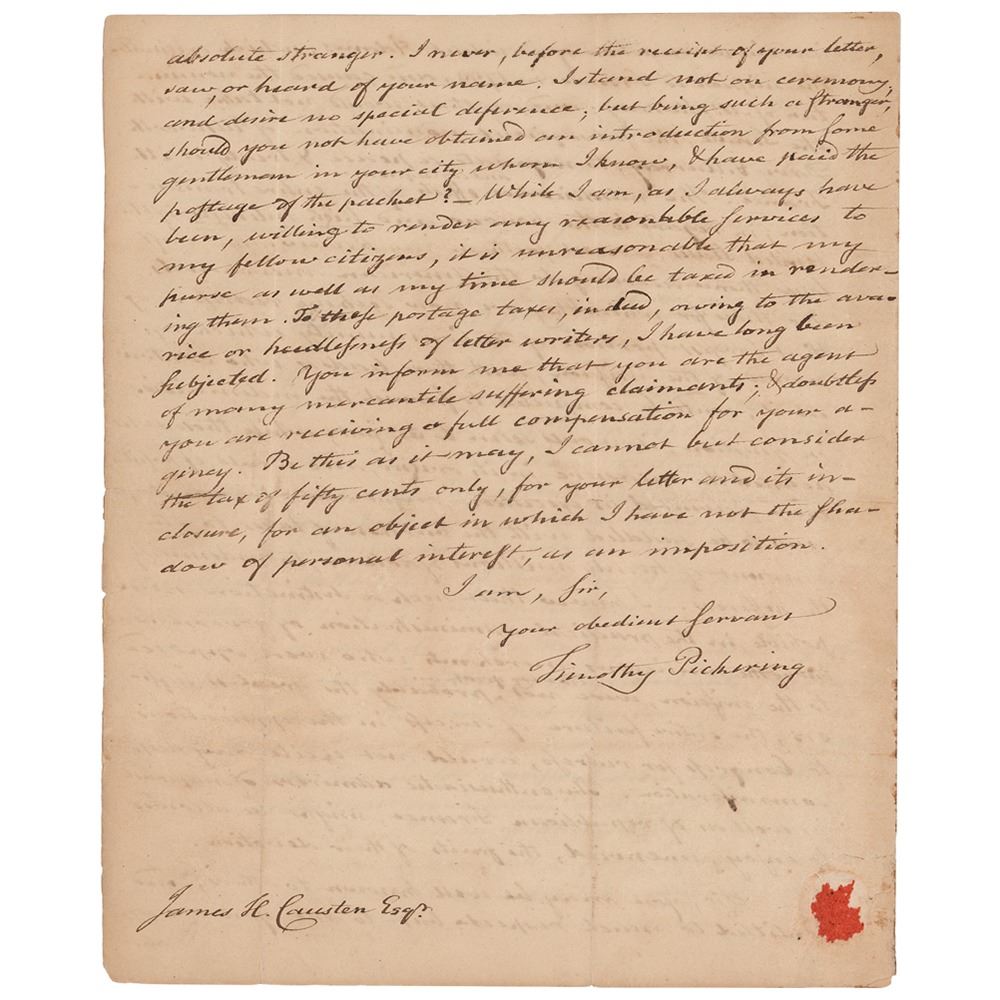 absolute stranger. I never, before the receipt of your letter,
saw, or heard of your name. I stand not on ceremony,
and desire no special deference; but being such a stranger,
should you not have obtained an introduction from some
gentleman in your city whom I know, & have paid the
postage of the packet? — While I am, as I always have
been, willing to render any reasonable services to
my fellow citizens, it is unreasonable that my
purse as well as my time should be taxed in render-
ing them. To these postage taxes, indeed, owing to the ava-
rice or heedlessness of letter writers, I have long been
subjected. You inform me that you are the agent
of many mercantile suffering claimants; & doubtless
you are receiving a full compensation for your a-
gency. Be this as it may, I cannot but consider
the tax of fifty cents only, for your letter and its in-
closure, for an object in which I have not the sha-
dow of personal interest, as an imposition.
I am, Sir,
your obedient servant
Timothy Pickering
James H. Causten Esqr.